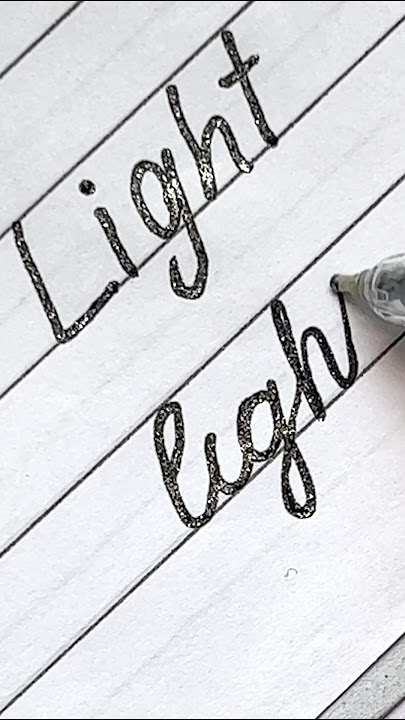 Light
ligh